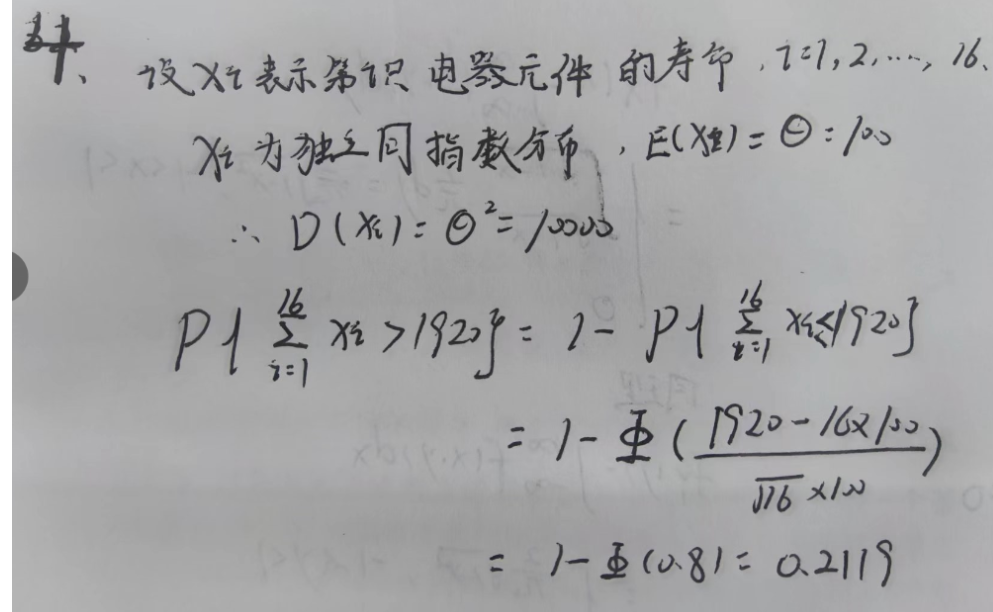 4、设Xi表示第i只电器元件的寿命,i=1,2,…,16、
Xi为独立同指数分布,E(Xi)=Θ=100
∴ D(Xi)=Θ²=10000
P{∑_{i=1}^{16} Xi>1920}=1-P{∑_{i=1}^{16} Xi≤1920}
=1-Φ(\frac{1920-16×100}{√16×100})
=1-Φ(0.8)=0.2119